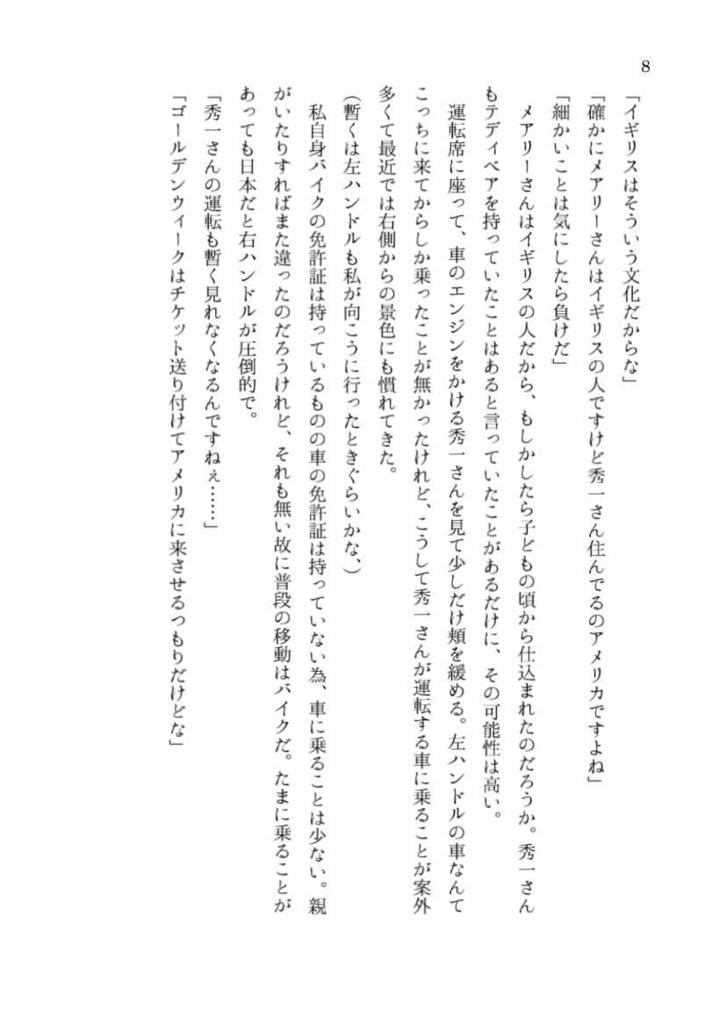 8
「イギリスはそういう文化だからな」
「確かにメアリーさんはイギリスの人ですけど秀一さん住んでるのアメリカですよね」
「細かいことは気にしたら負けだ」
　メアリーさんはイギリスの人だから、もしかしたら子どもの頃から仕込まれたのだろうか。秀一さん
もテディベアを持っていたことはあると言っていたことがあるだけに、その可能性は高い。
　運転席に座って、車のエンジンをかける秀一さんを見て少しだけ頬を緩める。左ハンドルの車なんて
こっちに来てからしか乗ったことが無かったけれど、こうして秀一さんが運転する車に乗ることが案外
多くて最近では右側からの景色にも慣れてきた。
(暫くは左ハンドルも私が向こうに行ったときぐらいかな、)
　私自身バイクの免許証は持っているものの車の免許証は持っていない為、車に乗ることは少ない。親
がいたりすればまた違ったのだろうけれど、それも無い故に普段の移動はバイクだ。たまに乗ることが
あっても日本だと右ハンドルが圧倒的で。
「秀一さんの運転も暫く見れなくなるんですねぇ……」
「ゴールデンウィークはチケット送り付けてアメリカに来させるつもりだけどな」